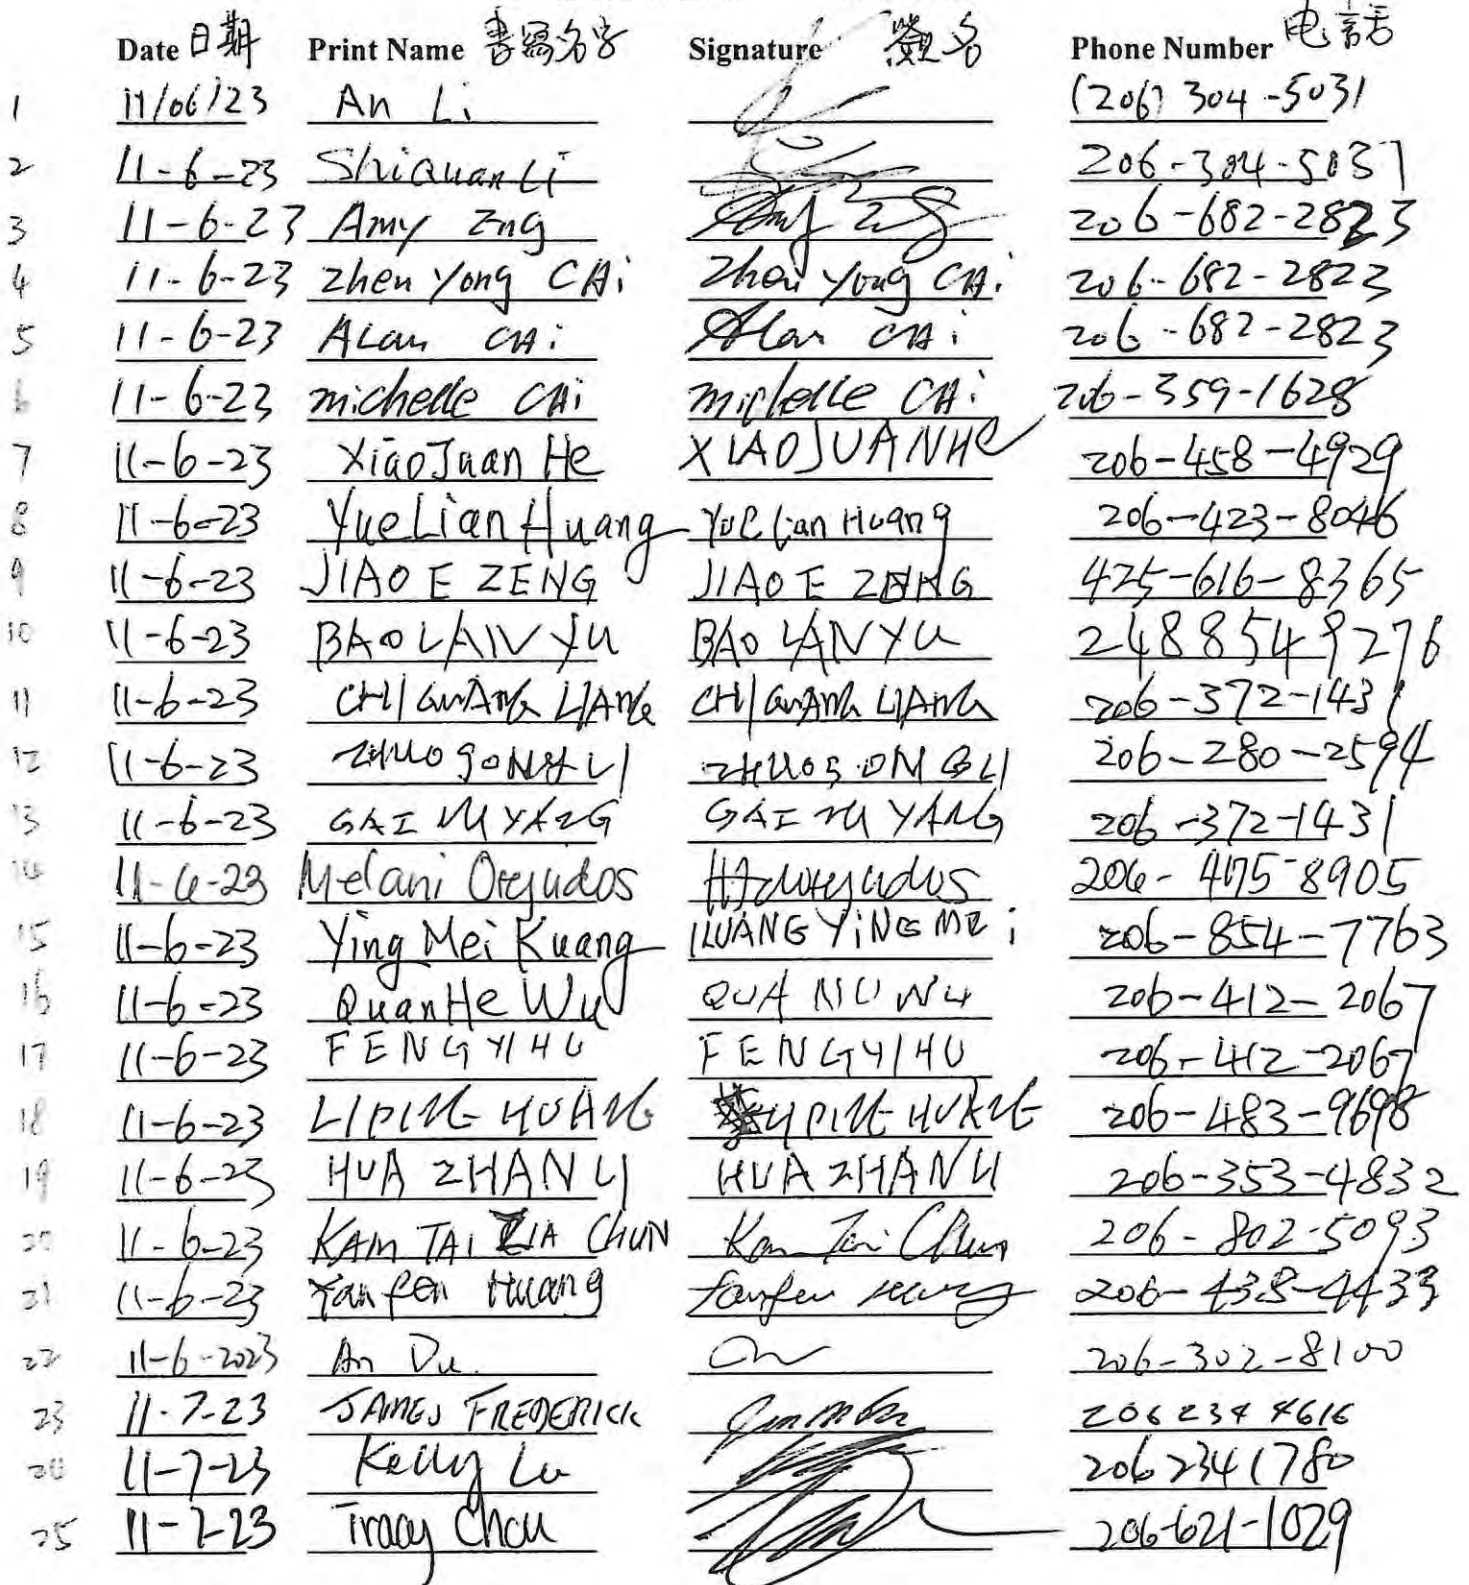 Date 日期 Print Name 書寫名字 Signature 簽名 Phone Number 电話
1 11/06/23 An Li (206) 304-5031
2 11-6-23 Shiquan Li 206-304-5031
3 11-6-23 Amy Zng Amy Zng 206-682-2823
4 11-6-23 zhen yong CAi zhen yong CAi 206-682-2823
5 11-6-23 ALan CAi Alan CAi 206-682-2823
6 11-6-23 michelle CAi michelle CAi 206-359-1628
7 11-6-23 XiaoJuan He XIAOJUANHe 206-458-4929
8 11-6-23 YueLian Huang Yue Lian Huang 206-423-8046
9 11-6-23 JIAO E ZENG JIAO E ZENG 425-616-8365
10 11-6-23 BAO LAN YU BAO LAN YU 2488549276
11 11-6-23 CHI GUANG LIANG CHI GUANG LIANG 206-372-1431
12 11-6-23 206-280-2594
13 11-6-23 YANG YANG 206-372-1431
14 11-6-23 Melani Oreyudos 206-475-8905
15 11-6-23 Ying Mei Kuang KUANG YiNG MEi 206-854-7763
16 11-6-23 QuanHe Wu 206-412-2067
17 11-6-23 FENG YI HU FENG YI HU 206-412-2067
18 11-6-23 LIPING HUANG LIPING HUANG 206-483-9698
19 11-6-23 HUA ZHAN LI HUA ZHAN LI 206-353-4832
20 11-6-23 KAM TAI CHUN Kam Tai Chun 206-802-5093
21 11-6-23 Yanfen Huang Yanfen Huang 206-438-4433
22 11-6-2023 An Du 206-302-8100
23 11-7-23 JAMES FREDERICK 206 234 4616
24 11-7-23 Kelly Lu 206 234 1780
25 11-7-23 Tracy Chou 206-621-1029